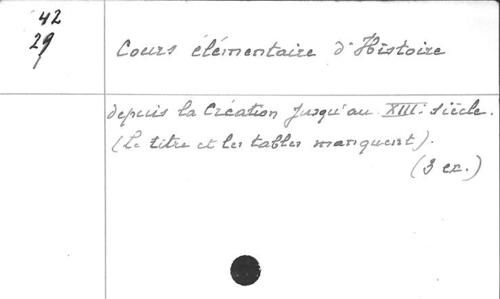 42
29
Cours élémentaire d'Histoire
depuis la Création jusqu'au XIII. siècle.
(Le titre et les tables manquent).
(3 ex.)